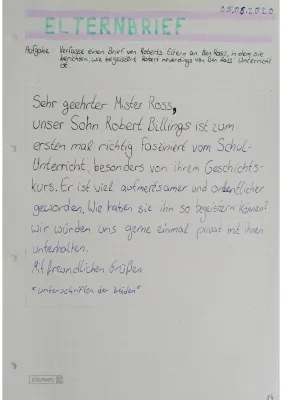 05.05.2020
ELTERNBRIEF
Aufgabe Verfasse einen Brief von Roberts Eltern an Ben Ross, in dem sie
berichten, wie begeistert Robert neuerdings von Ben Ross' Unterricht
ist
Sehr geehrter Mister Ross,
unser Sohn Robert Billings ist zum
ersten mal richtig fasziniert vom Schul-
Unterricht, besonders von ihrem Geschichts-
kurs. Er ist viel aufmerksamer und ordentlicher
geworden. Wie haben sie ihn so begeistern können?
Wir würden uns gerne einmal privat mit ihnen
unterhalten.
Mit freundlichen Grüßen
*unterschriften der beiden*